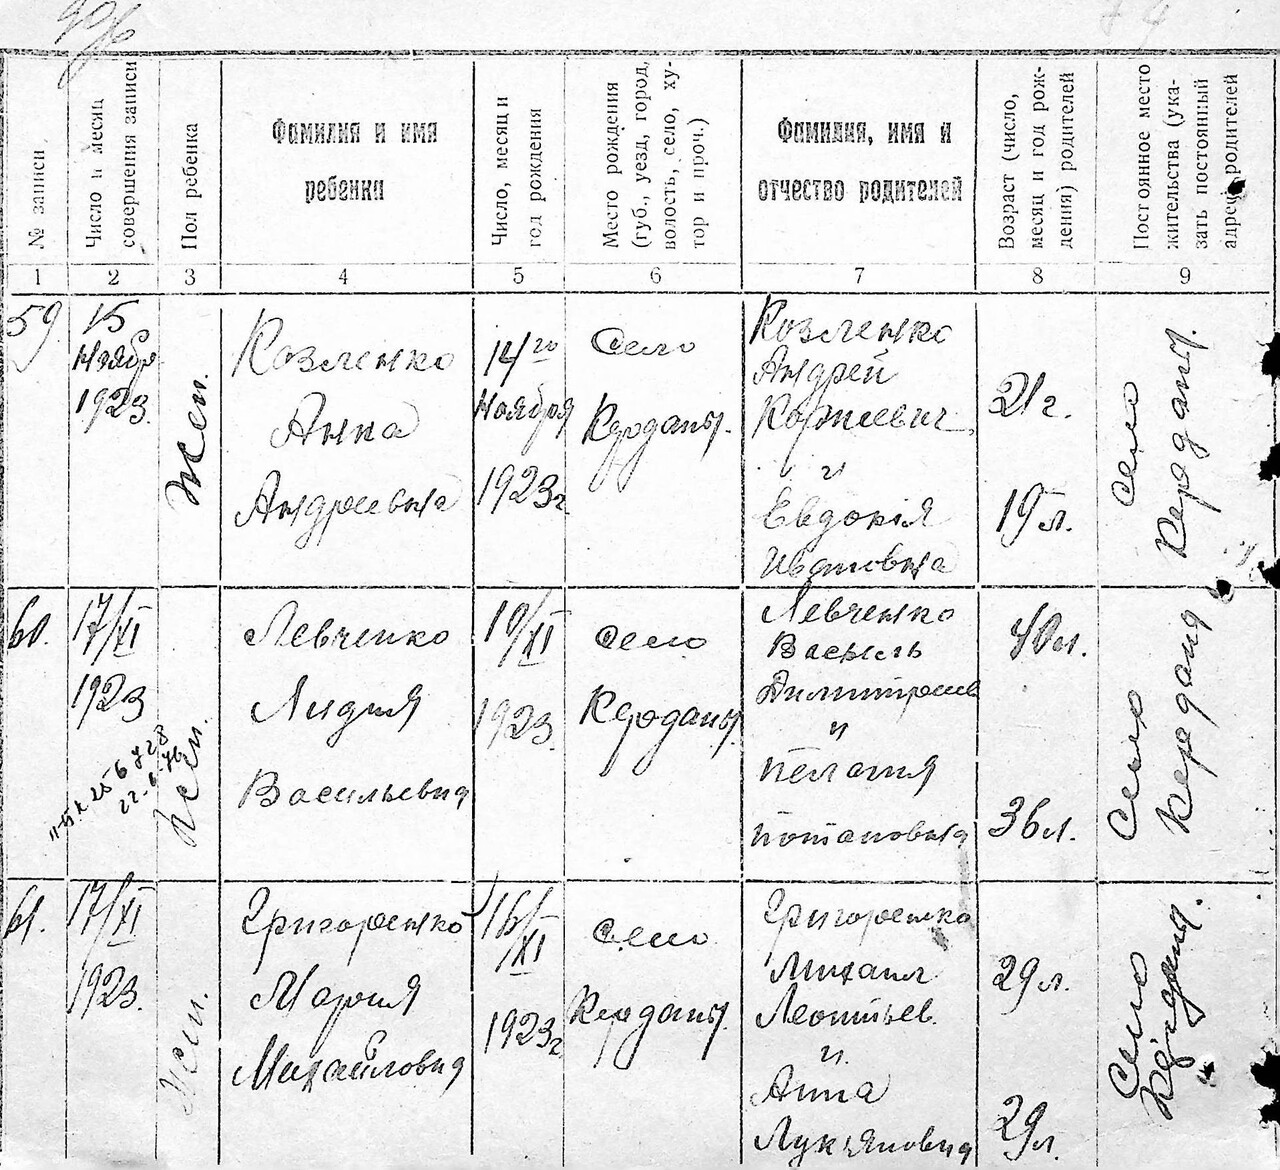 № записи
Число и месяц совершения записи
Пол ребенка
Фамилия и имя
ребенка
Число, месяц и
год рождения
Место рождения
(губ., уезд, город,
волость, село, ху-
тор и проч.)
Фамилия, имя и
отчество родителей
Возраст (число,
месяц и год рож-
дения) родителей
Постоянное место
жительства (ука-
зать постоянный
адрес родителей
1 2 3 4 5 6 7 8 9
59
15
Ноября
1923
Жен.
Козленко
Анна
Андреевна
14го
Ноября
1923г.
Село
Кердани.
Козленко
Андрей
Корнеевич
и
Евдокія
Ивановна
21г.
19л.
село
Кердани.
60.
17/XI
1923
Жен.
Левченко
Лидия
Васильевна
10/XI
1923
село
Кердани.
Левченко
Василь
Дилитриев
и
Пелагия
Потаповна
40л.
36л.
Село
Кердани
61.
17/XI
1923.
Жен.
Григоренко
Мария
Михайловна
16/XI
1923г
село
Кердани.
Григоренко
Михаил
Леонтьев.
и
Анна
Лукьяновна
29л.
29л.
Село
Кердани.